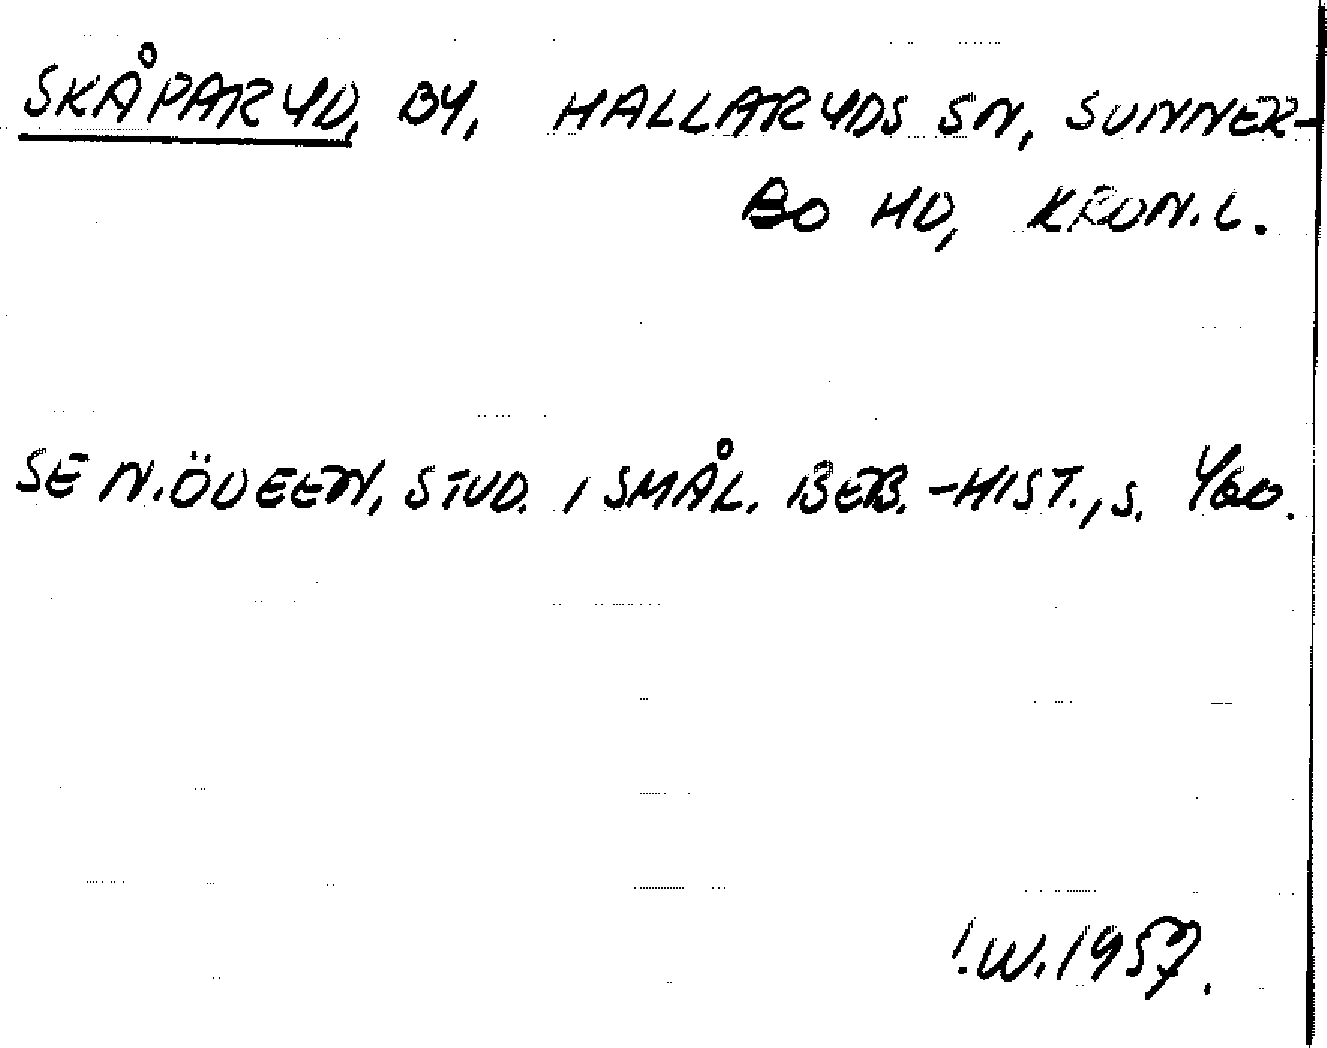 SKÅPARYD, BY, HALLARYDS SN, SUNNER-
BO HD, KRON.L.
SE N. ÖDEEN, STUD. I SMÅL. BEB.-HIST., S. 460.
I.W. 1957.